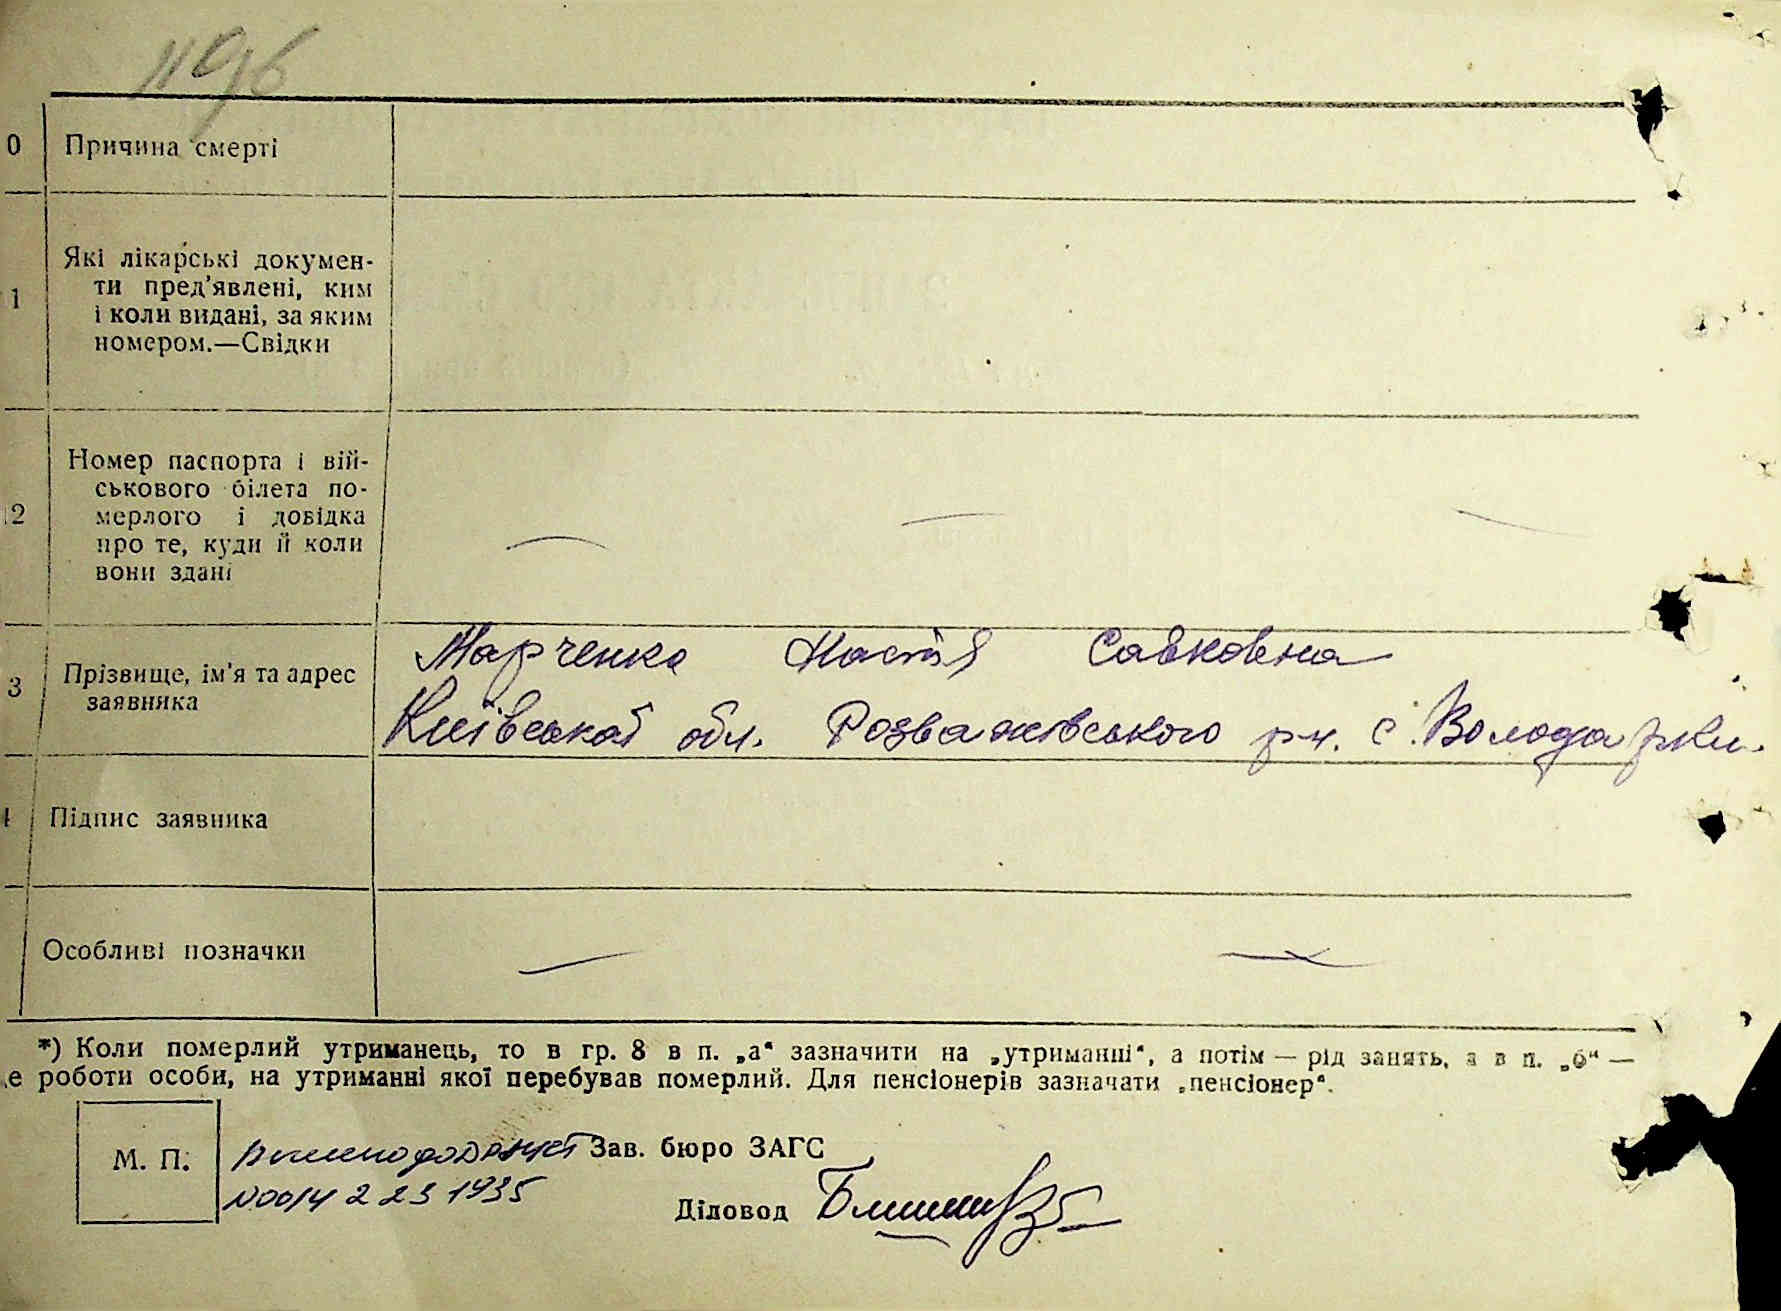 1196
0 Причина смерті
1 Які лікарські докумен-
ти пред'явлені, ким
і коли видані, за яким
номером.—Свідки
2 Номер паспорта і вій-
ськового білета по-
мерлого і довідка
про те, куди й коли
вони здані
3 Прізвище, ім'я та адрес
заявника
Марченко Настія Савковна
Київської обл. Розважівського рн. с. Володарки.
Підпис заявника
Особливі позначки
*) Коли померлий утриманець, то в гр. 8 в п. „а“ зазначити на „утриманні“, а потім — рід занять, а в п. „б“ —
е роботи особи, на утриманні якої перебував померлий. Для пенсіонерів зазначати „пенсіонер“.
М. П.
Зав. бюро ЗАГС
1935
Діловод